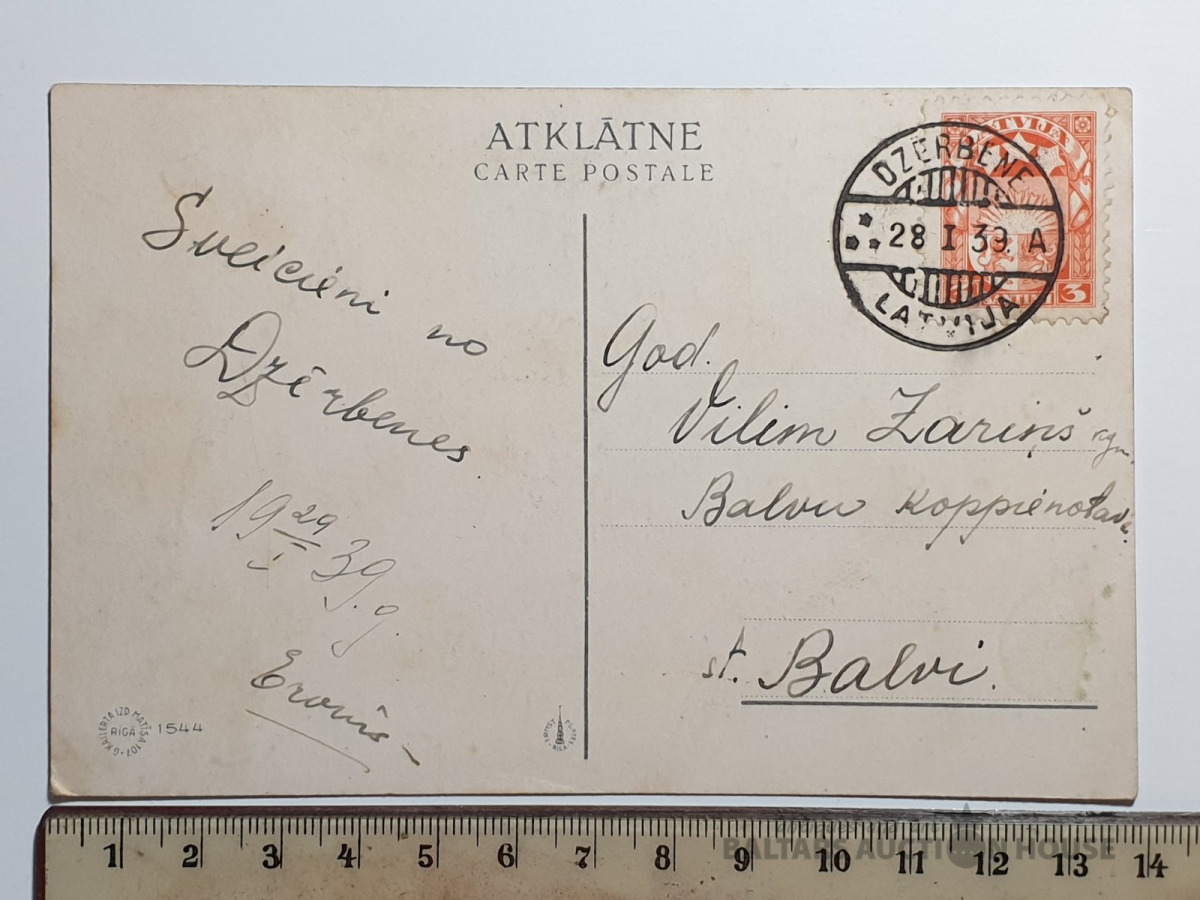 ATKLĀTNE
CARTE POSTALE
LATVIJA
3
DZĒRBENE
28 I 39. A
LATVIJA
Sveicieni no
Dzērbenes.
19 29/I 39. g.
God.
Vilim Zariņš kgm.
Balvu koppienotava
st. Balvi.
G. KAILERTA IZD. MATĪSA 107
RĪGĀ
1544
1 2 3 4 5 6 7 8 9 10 11 12 13 14
BALTARS AUCTION HOUSE